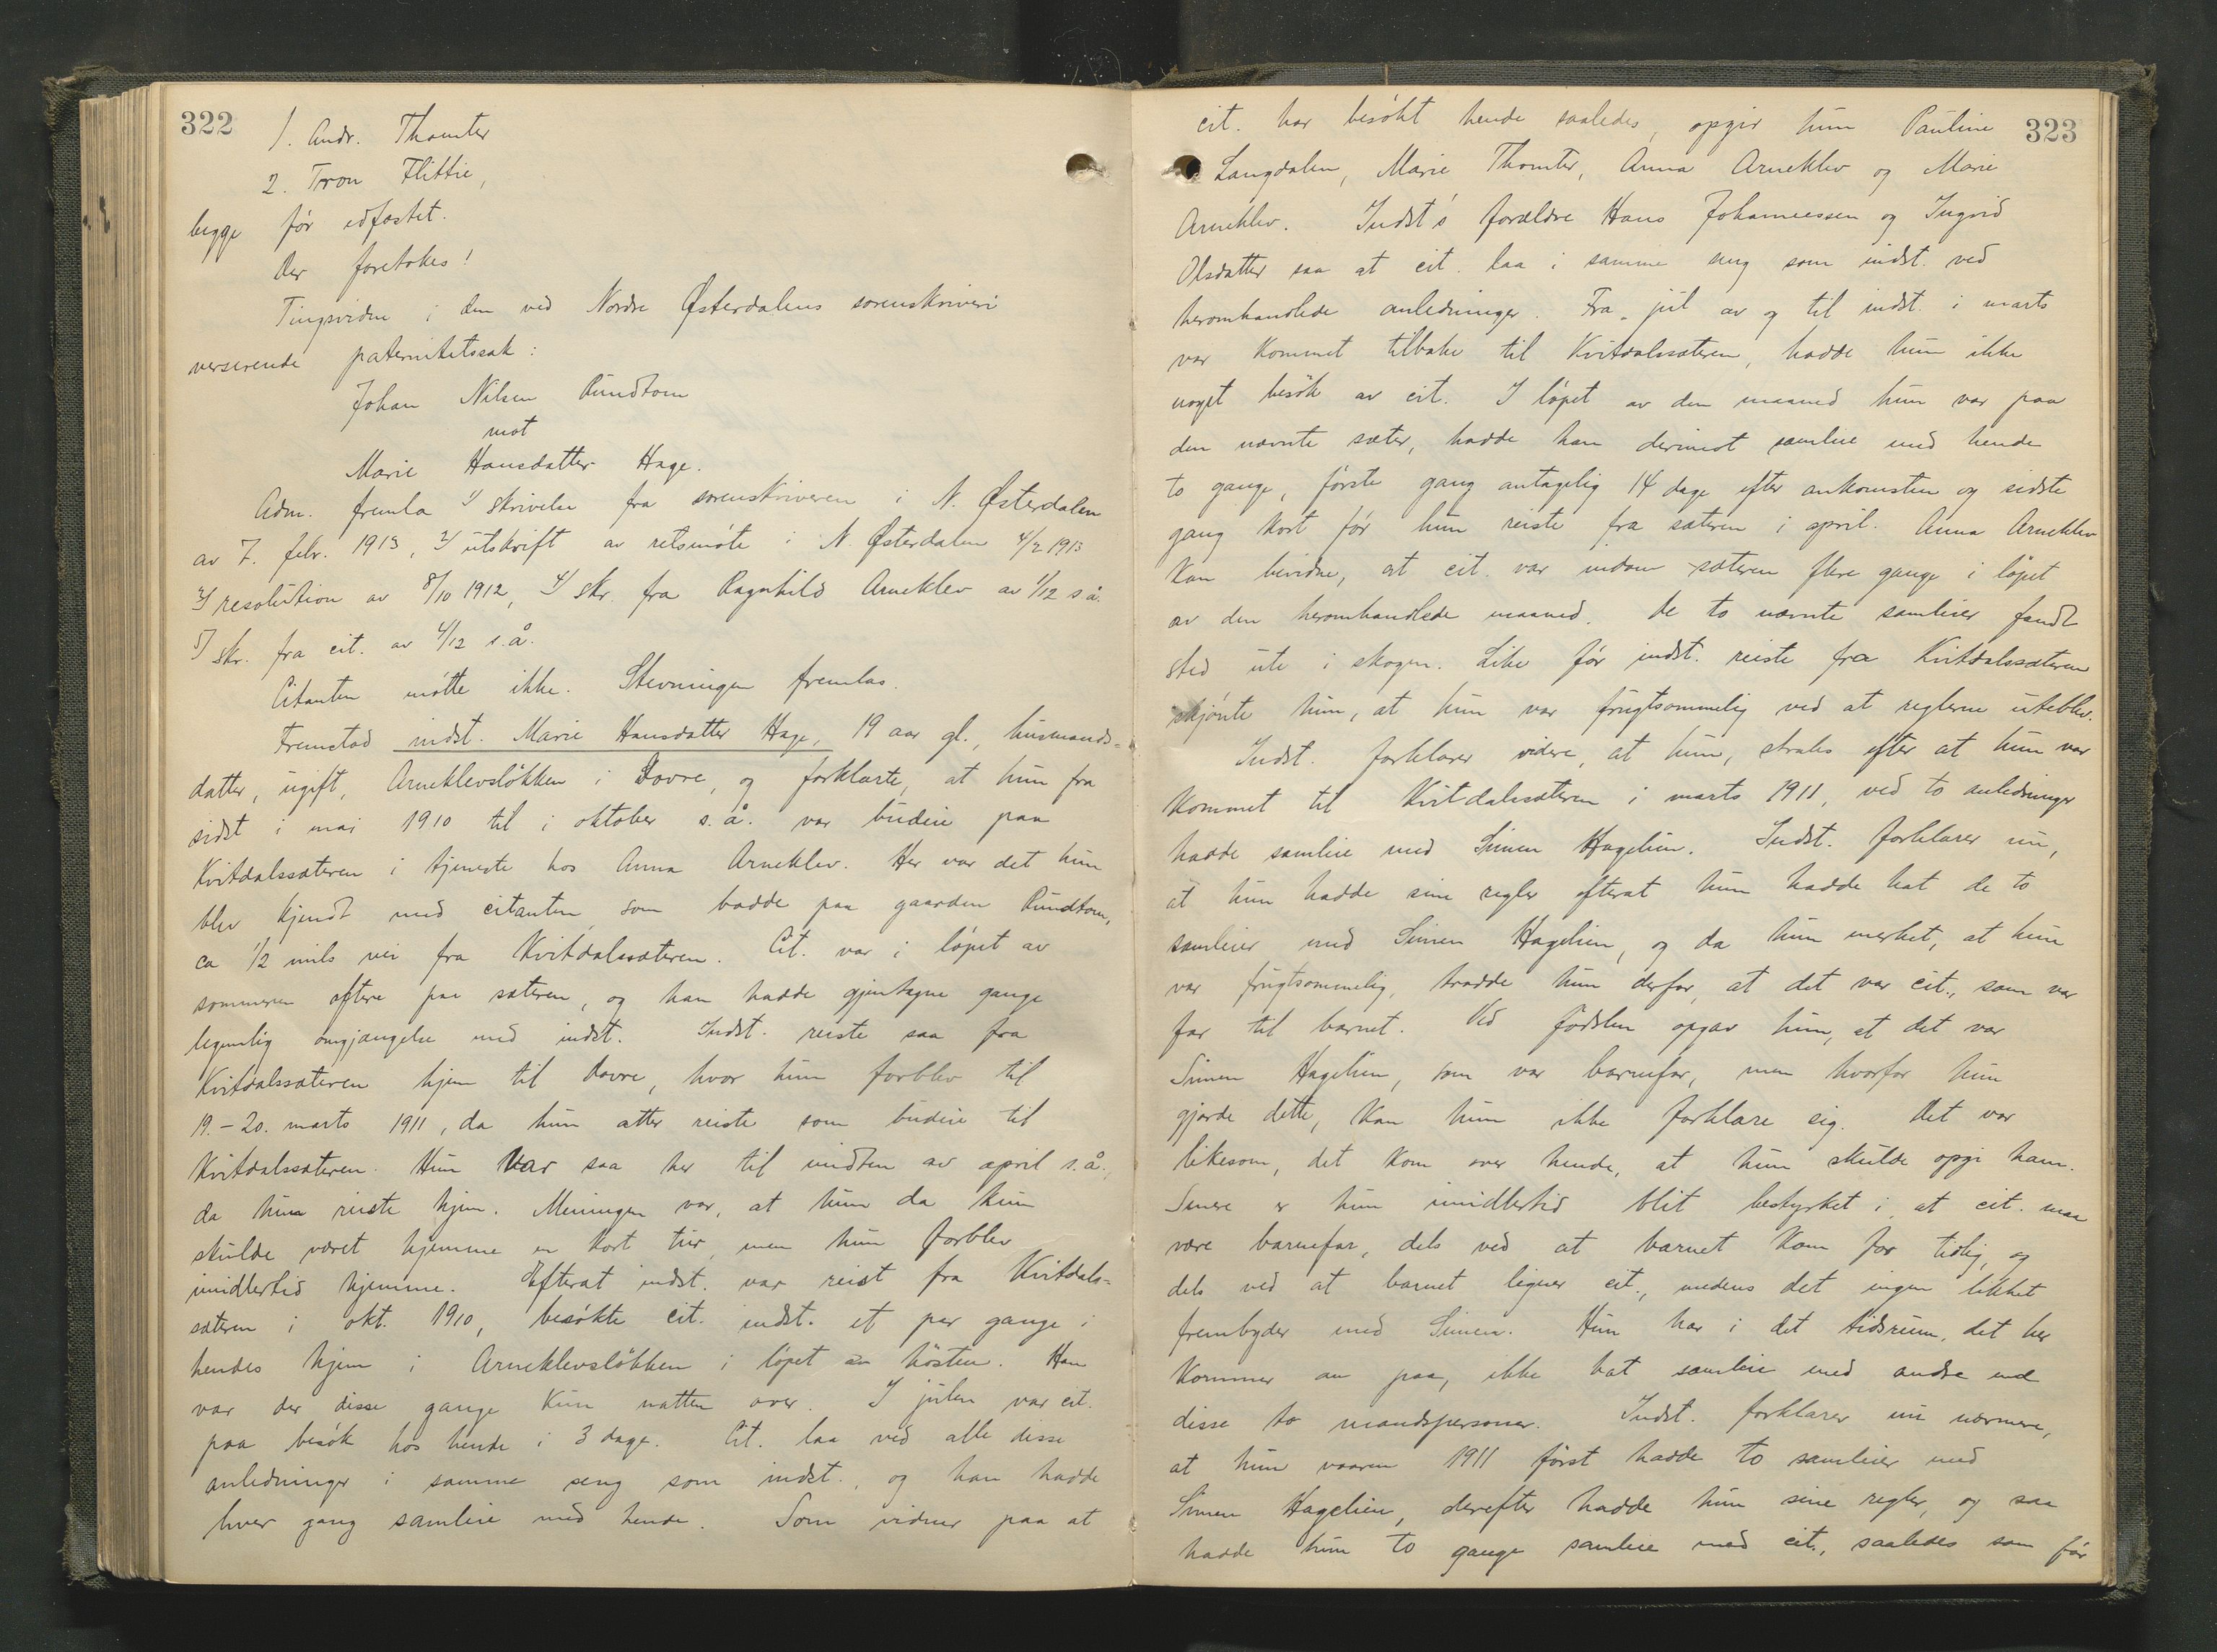 322
1. Andr. Thomter
2. Tron Flittie,
begge før edfæstet.
Der foretokes!
Tingsvidne i den ved Nordre Østerdalens sorenskriveri
verserende paternitetssak:
Johan Nilsen Rundtom
mot
Marie Hansdatter Hage.
Adm. fremla 1/ skrivelse fra sorenskriveren i N. Østerdalen
av 7. febr. 1913, 2/ utskrift av retsmøte i N. Østerdalen 4/2 1913
3/ resolution av 8/10 1912, 4/ skr. fra Ragnhild Arneklev av 1/12 s å.
5/ skr. fra cit. av 4/12 s. å.
Citanten møtte ikke. Stevningen fremlas.
Fremstod indst. Marie Hansdatter Hage, 19 aar gl., husmands-
datter, ugift, Arneklevsløkken i Dovre, og forklarte, at hun fra
sidst i mai 1910 til i oktober s. å. var budeie paa
Kvitdalssæteren i tjeneste hos Anna Arneklev. Her var det hun
blev kjendt med citanten, som bodde paa gaarden Rundtom,
ca 1/2 mils vei fra Kvitdalssæteren. Cit. var i løpet av
sommeren oftere paa sæteren, og han hadde gjentagne gange
legemlig omgjængelse med indst. Indst. reiste saa fra
Kvitdalssæteren hjem til Dovre, hvor hun forblev til
19.-20. marts 1911, da hun atter reiste som budeie til
Kvitdalssæteren. Hun var saa her til midten av april s. å.,
da hun reiste hjem. Meningen var, at hun da kun
skulde været hjemme en kort tur, men hun forblev
imidlertid hjemme. Efterat indst. var reist fra Kvitdals-
sæteren i okt. 1910, besøkte cit. indst. et par gange i
hendes hjem i Arneklevsløkken i løpet av høsten. Han
var der disse gange kun natten over. I julen var cit.
paa besøk hos hende i 3 dage. Cit. laa ved alle disse
anledninger i samme seng som indst., og han hadde
hver gang samleie med hende. Som vidner paa at
323
cit. har besøkt hende saaledes, opgir hun Pauline
Langdalen, Marie Thomter, Anna Arneklev og Marie
Arneklev. Indst's forældre Hans Johannessen og Ingrid
Olsdatter saa at cit. laa i samme seng som indst. ved
heromhandlede anledninger. Fra jul av og til indst. i marts
var kommet tilbake til Kvitdalssæteren, hadde hun ikke
noget besøk av cit. I løpet av den maaned hun var paa
den nævnte sæter, hadde han derimot samleie med hende
to gange, første gang antagelig 14 dage efter ankomsten og sidste
gang kort før hun reiste fra sæteren i april. Anna Arneklev
kan bevidne, at cit. var indom sæteren flere gange i løpet
av den heromhandlede maaned. De to nævnte samleier fandt
sted ute i skogen. Like før indst. reiste fra Kvitdalssæteren
skjønte hun, at hun var frugtsommelig ved at reglerne uteblev.
Indst. forklarer videre, at hun, straks efter at hun var
kommet til Kvitdalssæteren i marts 1911, ved to anledninger
hadde samleie med Simen Hagelien. Indst. forklarer nu,
at hun hadde sine regler efterat hun hadde hat de to
samleier med Simen Hagelien, og da hun merket, at hun
var frugtsommelig, trodde hun derfor, at det var cit., som var
far til barnet. Ved fødslen opgav hun, at det var
Simen Hagelien, som var barnefar, men hvorfor hun
gjorde dette, kan hun ikke forklare sig. Det var
likesom, det kom over hende, at hun skulde opgi ham.
Senere er hun imidlertid blit bestyrket i, at cit. maa
være barnefar, dels ved at barnet kom for tidlig, og
dels ved at barnet ligner cit., medens det ingen likhet
frembyder med Simen. Hun har i det tidsrum, det her
kommer an paa, ikke hat samleie med andre end
disse to mandspersoner. Indst. forklarer nu nærmere,
at hun vaaren 1911 først hadde to samleier med
Simen Hagelien, derefter hadde hun sine regler, og saa
hadde hun to gange samleie med cit., saaledes som før